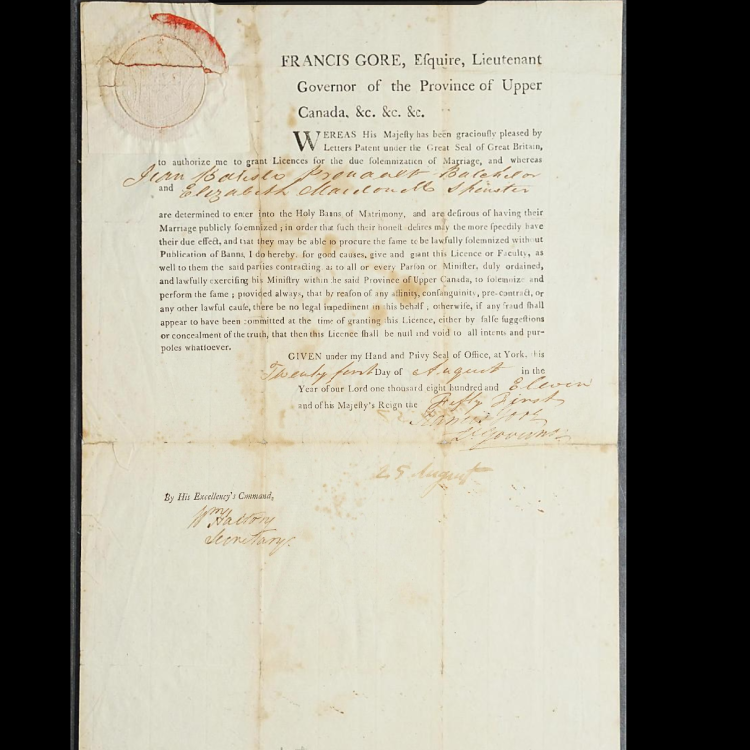 FRANCIS GORE, Eſquire, Lieutenant
Governor of the Province of Upper
Canada, &c. &c. &c.
WEREAS His Majeſty has been graciouſly pleaſed by
Letters Patent under the Great Seal of Great Britain,
to authorize me to grant Licences for the due ſolemnization of Marriage, and whereas
Jean Batiste Batchelor
and Elizabeth Macdonell Spinster
are determined to enter into the Holy Banns of Matrimony, and are deſirous of having their
Marriage publicly ſolemnized; in order that ſuch their honeſt deſires may the more ſpeedily have
their due effect, and that they may be able to procure the ſame to be lawfully ſolemnized without
Publication of Banns, I do hereby, for good cauſes, give and grant this Licence or Faculty, as
well to them the ſaid parties contracting as to all or every Parſon or Miniſter, duly ordained,
and lawfully exerciſing his Miniſtry within the ſaid Province of Upper Canada, to ſolemnize and
perform the ſame; provided always, that by reaſon of any affinity, conſanguinity, pre-contract, or
any other lawful cauſe, there be no legal impediment in this behalf; otherwiſe, if any fraud ſhall
appear to have been committed at the time of granting this Licence, either by falſe ſuggeſtions
or concealment of the truth, that then this Licence ſhall be null and void to all intents and pur-
poſes whatſoever.
GIVEN under my Hand and Privy Seal of Office, at York, this
Twenty first Day of August in the
Year of our Lord one thousand eight hundred and Eleven
and of his Majeſty's Reign the Fifty First
Francis Gore
Lt Governor
25 August
By His Excellency's Command,
Wm Halton
Secretary.